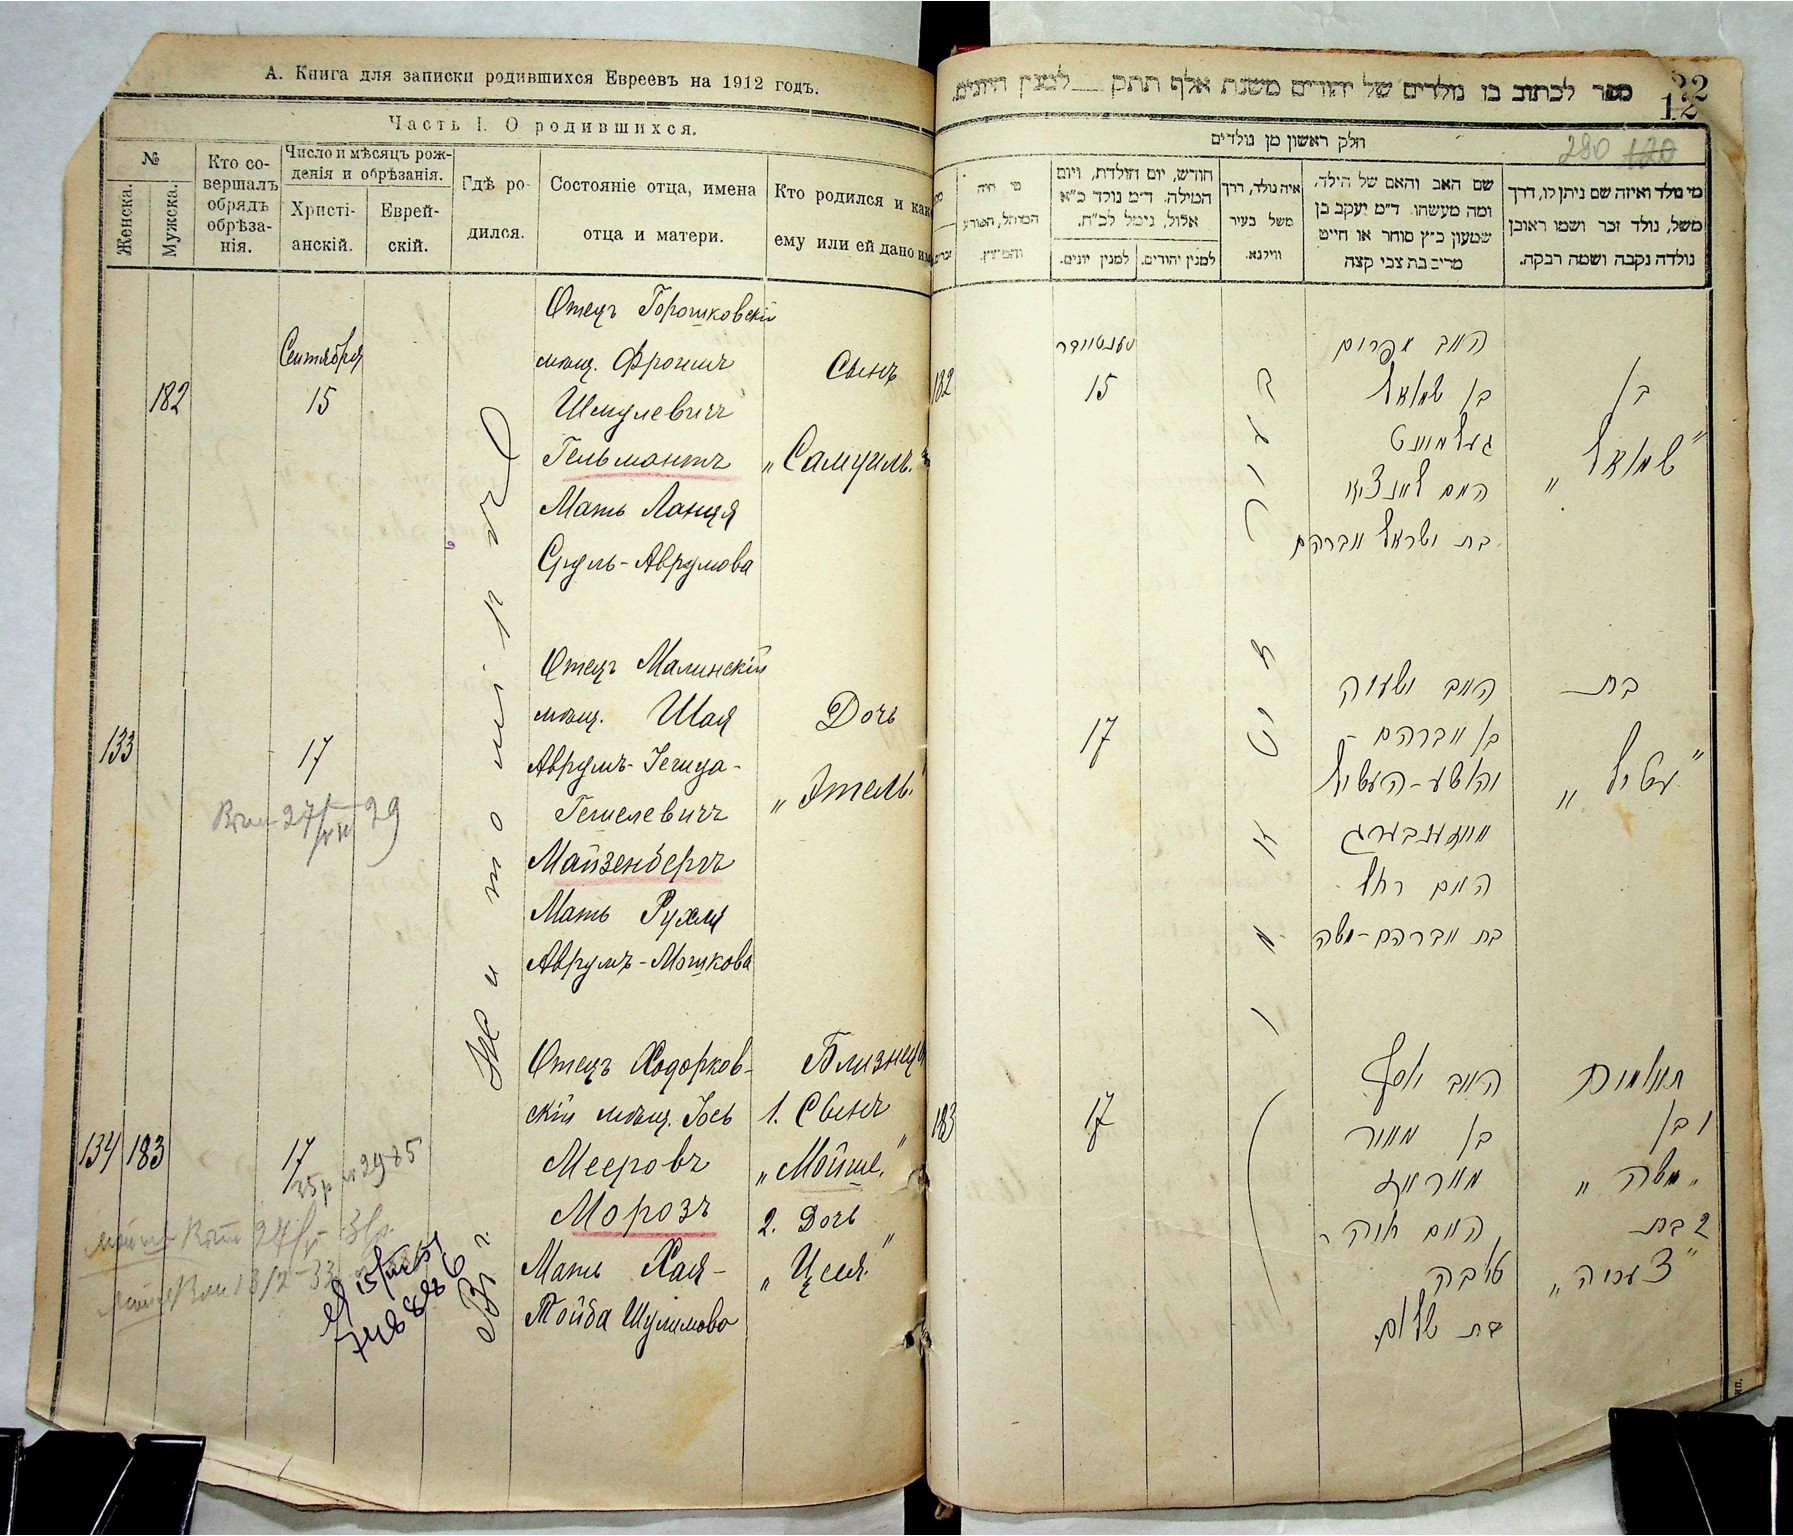 А. Книга для записки родившихся Евреевъ на 1912 годъ.
Часть I. О родившихся.
№
Женска.
Мужска.
Кто со-
вершалъ
обрядъ
обрѣза-
нія.
Число и мѣсяцъ рож-
денія и обрѣзанія.
Христі-
анскій.
Еврей-
скій.
Гдѣ ро-
дился.
Состояніе отца, имена
отца и матери.
Кто родился и как
ему или ей дано им
Въ г. Житомірѣ
182
Сентября
15
Отецъ Горошковскій
мѣщ. Фроимъ
Шмулевичъ
Гельмонтъ
Мать Ланця
Сруль-Аврумова
Сынъ
„Самуилъ.“
133
17
Отецъ Малинскій
мѣщ. Шая
Аврумъ-Гегиуа-
Гешелевичъ
Майзенбергъ
Мать Рухля
Аврумъ-Мошкова
Дочь
„Этель“
134 183
17
Отецъ Ходорков-
скій мѣщ. Іось
Мееровъ
Морозъ
Мать Хая-
Тойба Шулимова
Близнецы
1. Сынъ
„Мойше.“
2. Дочь
„Цеся.“
ספר לכתוב בו נולדים של יהודים משנת אלף תתק למנין היונים.
22
12
280 120
חלק ראשון מן נולדים
מי היה
המוהל, הפורע
והמוצץ.
חודש, יום הולדת, ויום
המילה. ד״מ נולד כ״א
אלול, נימל לכ״ח.
למנין יונים.
למנין יהודים.
איה נולד, דרך
משל בעיר
ווילנא.
שם האב והאם של הילד,
ומה מעשהו. ד״מ יעקב בן
שמעון כ״ץ סוחר או חייט
מרים בת צבי קצה
מי נולד ואיזה שם ניתן לו, דרך
משל, נולד זכר ושמו ראובן
נולדה נקבה ושמה רבקה.
182
סענטיאבר
15
האב אפרים
בן שמואל
געלמונט
האם לאנציא
בת ישראל אברהם
בן
„שמואל“
17
האב ישעיה
בן אברהם
יהושע-העשיל
מייזענבערג
האם רחל
בת אברהם-משה
בת
„עטיל“
183
17
האב יוסף
בן מאיר
מאראז
האם חיה
טויבה
בת שלום
תאומים
1 בן
„משה“
2 בת
„צעסיה“